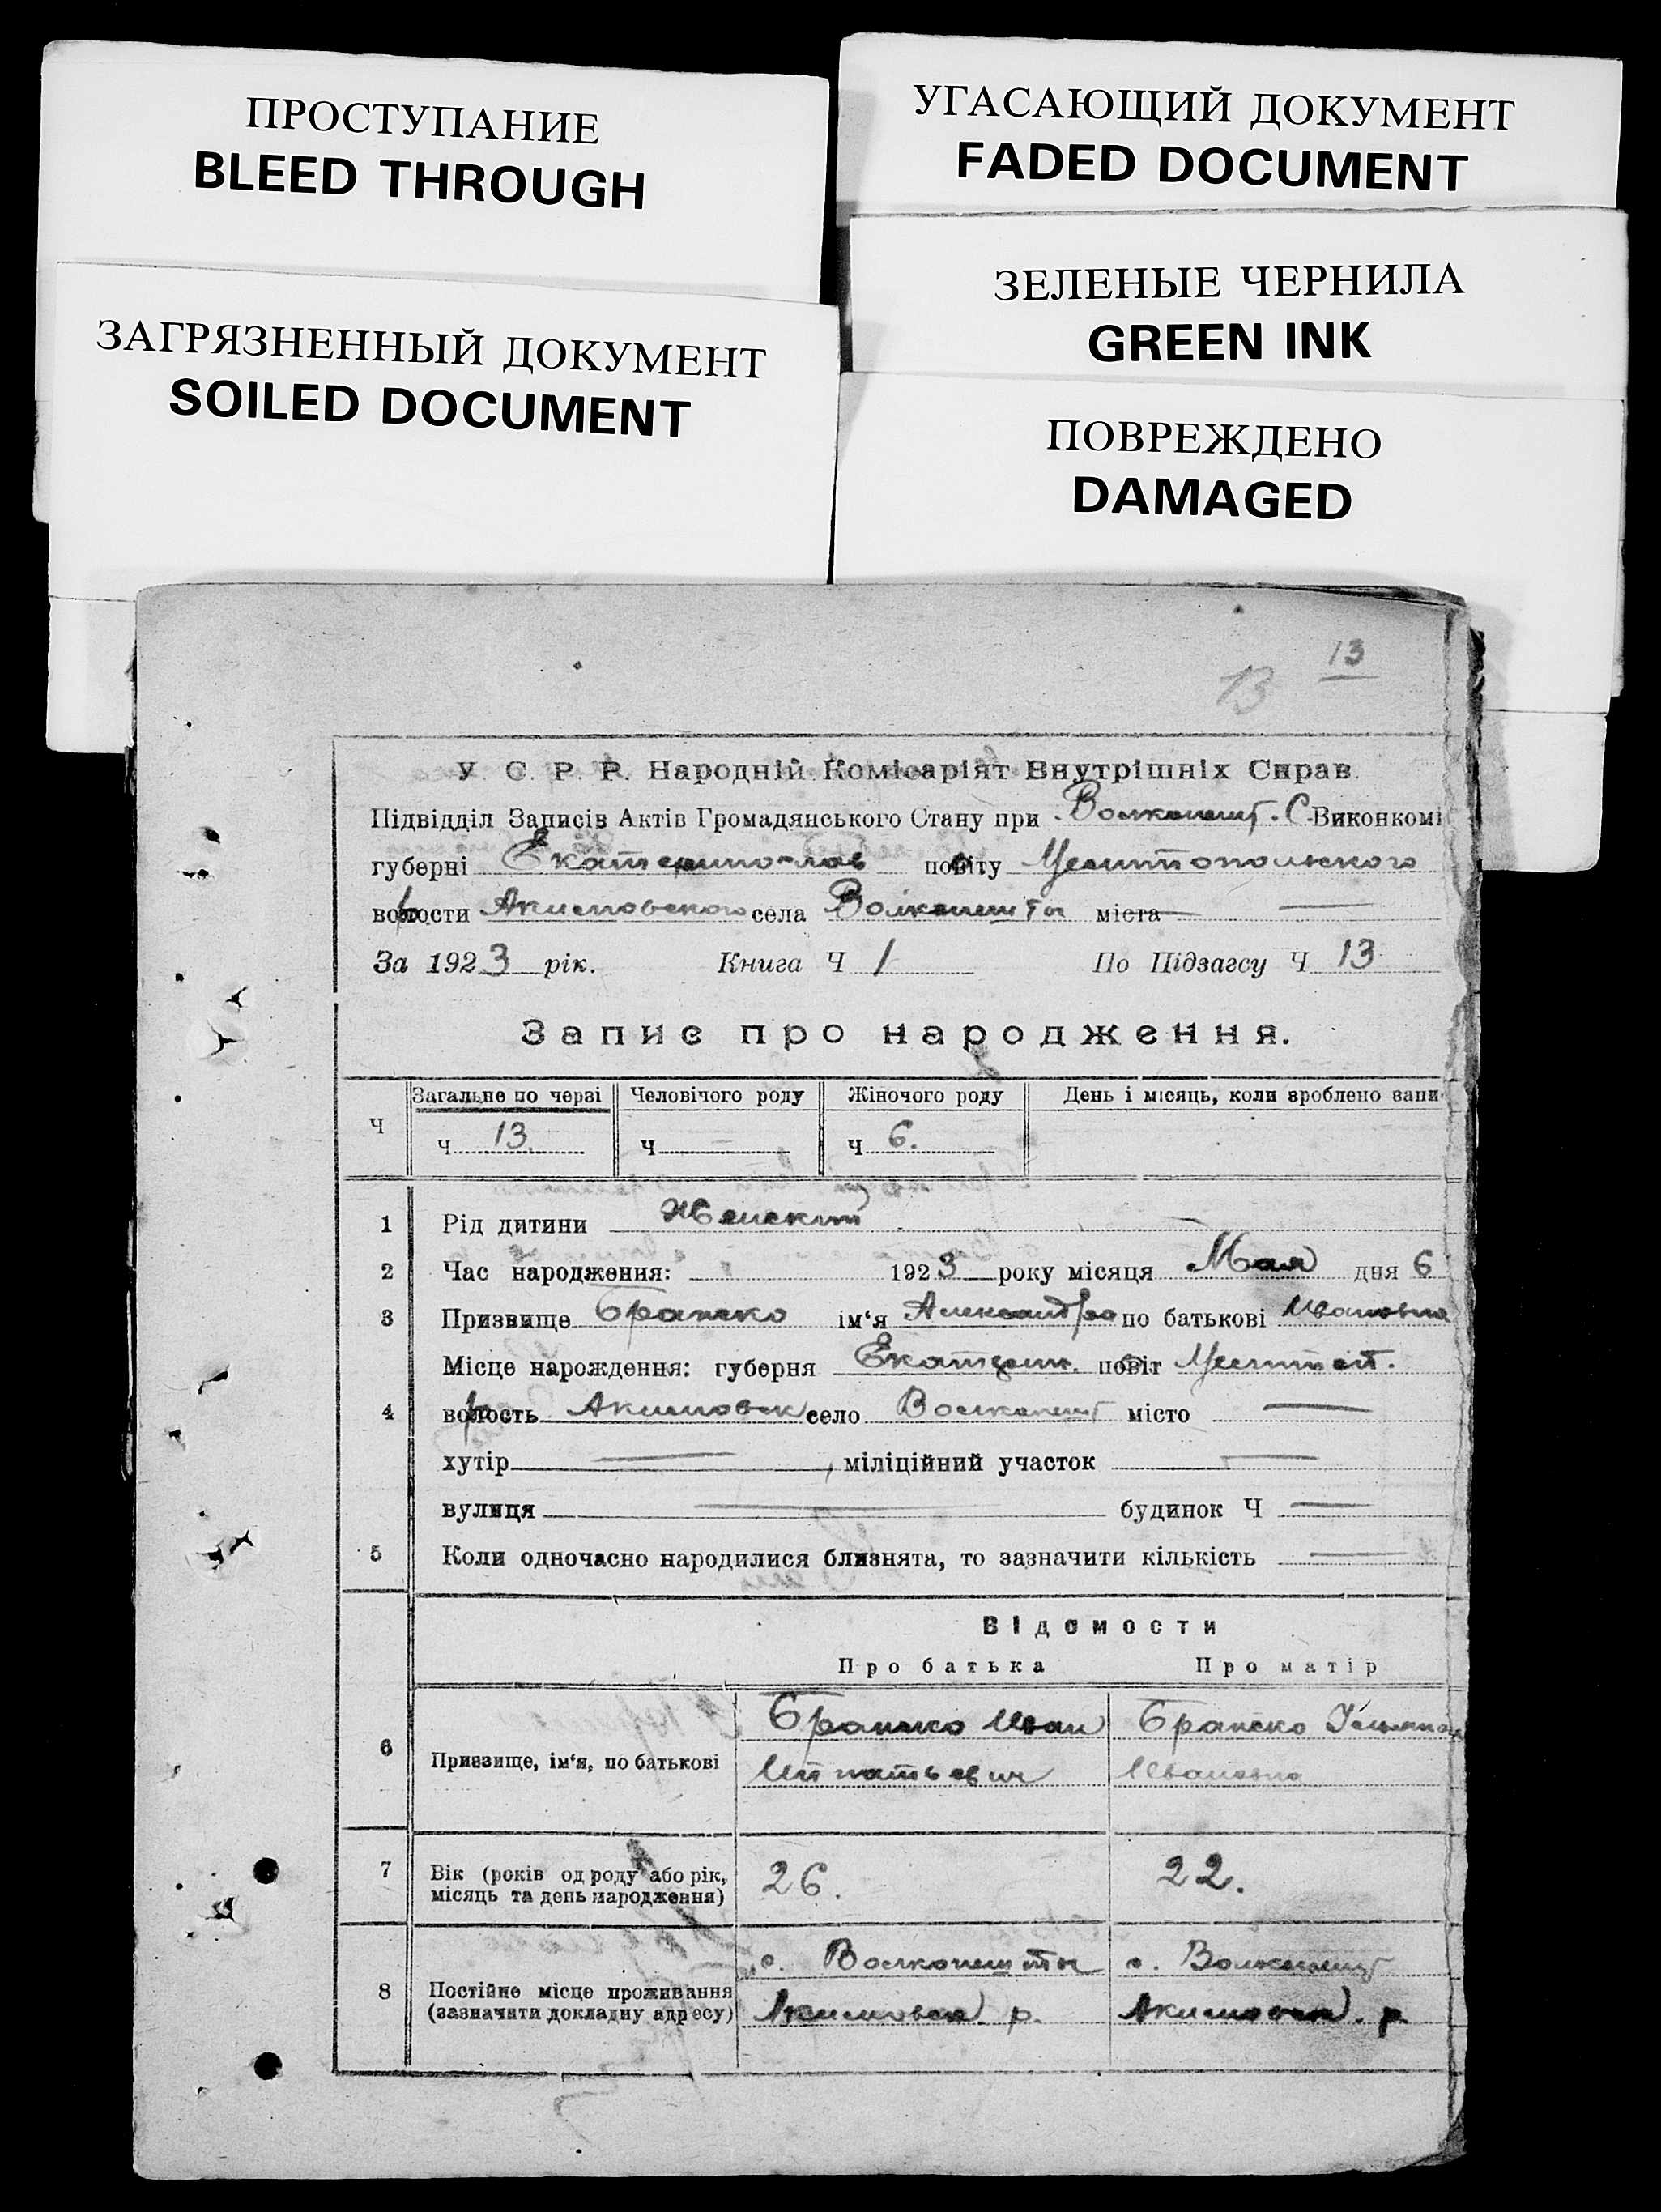 ПРОСТУПАНИЕ
BLEED THROUGH
УГАСАЮЩИЙ ДОКУМЕНТ
FADED DOCUMENT
ЗЕЛЕНЫЕ ЧЕРНИЛА
GREEN INK
ЗАГРЯЗНЕННЫЙ ДОКУМЕНТ
SOILED DOCUMENT
ПОВРЕЖДЕНО
DAMAGED
13
13
У. С. Р. Р. Народній Комісаріят Внутрішніх Справ.
Підвідділ Записів Актів Громадянського Стану при Волканешт. С-Виконкомі
губерні Екатеринослав повіту Мелитопольского
волости Акимовского села Волканешты міста —
За 1923 рік. Книга Ч 1 По Підзагсу Ч 13
Запис про народження.
Ч Загальне по черзі Человічого роду Жіночого роду День і місяць, коли зроблено запи
Ч 13. Ч — Ч 6.
1 Рід дитини Женский
2 Час народження: 1923 року місяця Мая дня 6
3 Призвище Бранско ім‘я Александра по батькові Ивановна
Місце нарождення: губерня Екатерин. повіт Мелитоп.
4 волость Акимовск село Волканешт місто —
хутір —, міліційний участок —
вулиця — будинок Ч —
5 Коли одночасно народилися близнята, то зазначити кількість —
Відомости
Про батька Про матір
6 Призвище, ім‘я, по батькові Бранско Иван Бранско
Игнатьевич Ивановна
7 Вік (років од роду або рік, місяць та день народження) 26. 22.
8 Постійне місце проживання с. Волканешты с. Волканешт
(зазначити докладну адресу) Акимовск. р. Акимовск. р.